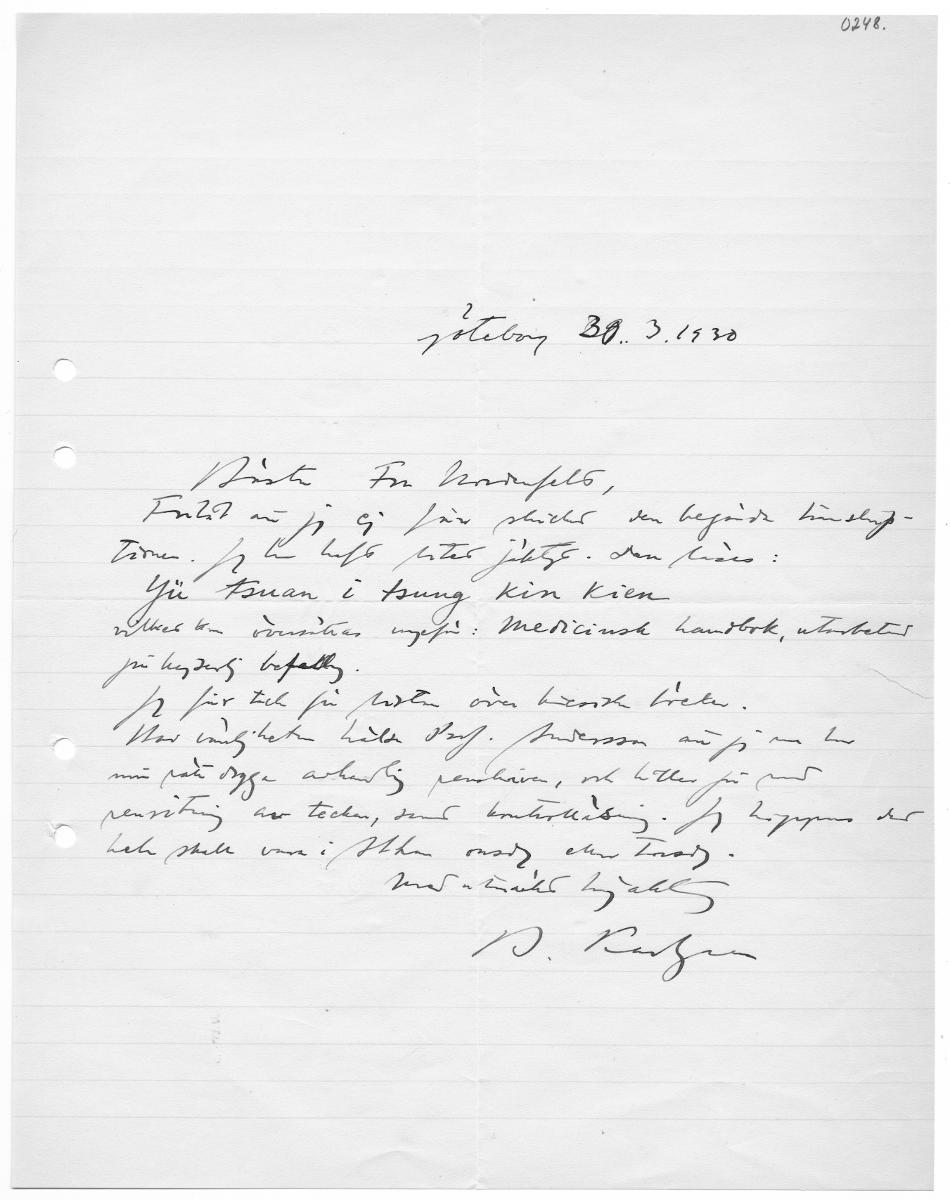 0248.
Göteborg 30.. 3. 1930
Bästa Fru Nordenfelt,
Förlåt att jag ej förr skickat den begärda transkrip-
tionen. Jag har haft litet jäktigt. Den läses:
Yü tsuan i tsung kin kien
vilket kan översättas ungefär: Medicinsk handbok, utarbetad
på kejserlig befallning.
Jag får tack för listan över kinesiska böcker.
Hav vänligheten hälsa Prof. Andersson att jag nu har
min rätt dryga avhandling renskriven, och håller på med
renritning av tecken, samt kontrolläsning. Jag hoppas det
hela skall vara i Sthlm onsdag eller torsdag.
Med utmärkt högaktning
B. Karlgren